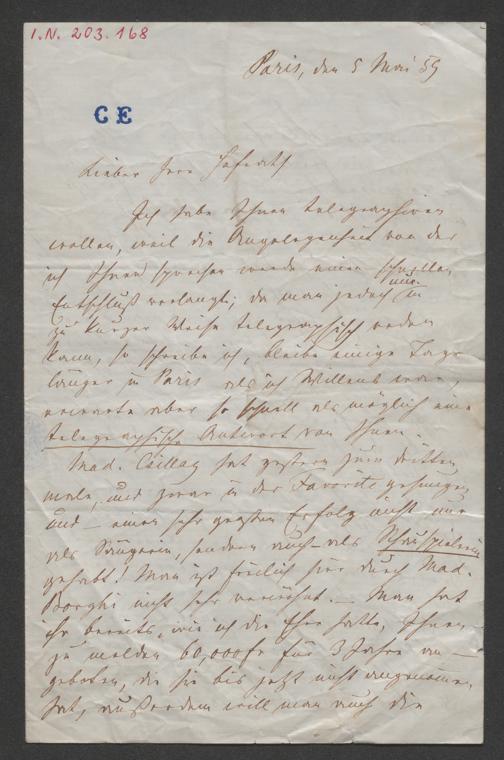 I.N. 203.168
Paris, den 5 Mai 59
CE
Lieber Herr Hofrath
Ich habe Ihnen telegraphiren
wollen, weil die Angelegenheit von der
ich Ihnen sprechen werde einen schnellen
Entschluß verlangt; da man jedoch nur in
zu kurzer Weise telegraphisch reden
kann, so schreibe ich, bleibe einige Tage
länger in Paris als ich Willens war,
erwarte aber so schnell als möglich eine
telegraphische Antwort von Ihnen.
Mad. Csillag hat gestern zum dritten
male, und zwar in der Favorite gesungen
und – einen sehr großen Erfolg nicht nur
als Sängerin, sondern auch – als Schauspielerin
gehabt! Man ist freilich hier durch Mad.
Borghi nicht sehr verwöhnt. – Man hat
ihr bereits, wie ich die Ehre hatte, Ihnen
zu melden 60,000 fr für 3 Jahre an –
geboten, die sie bis jetzt nicht angenommen
hat, außerdem will man auch die